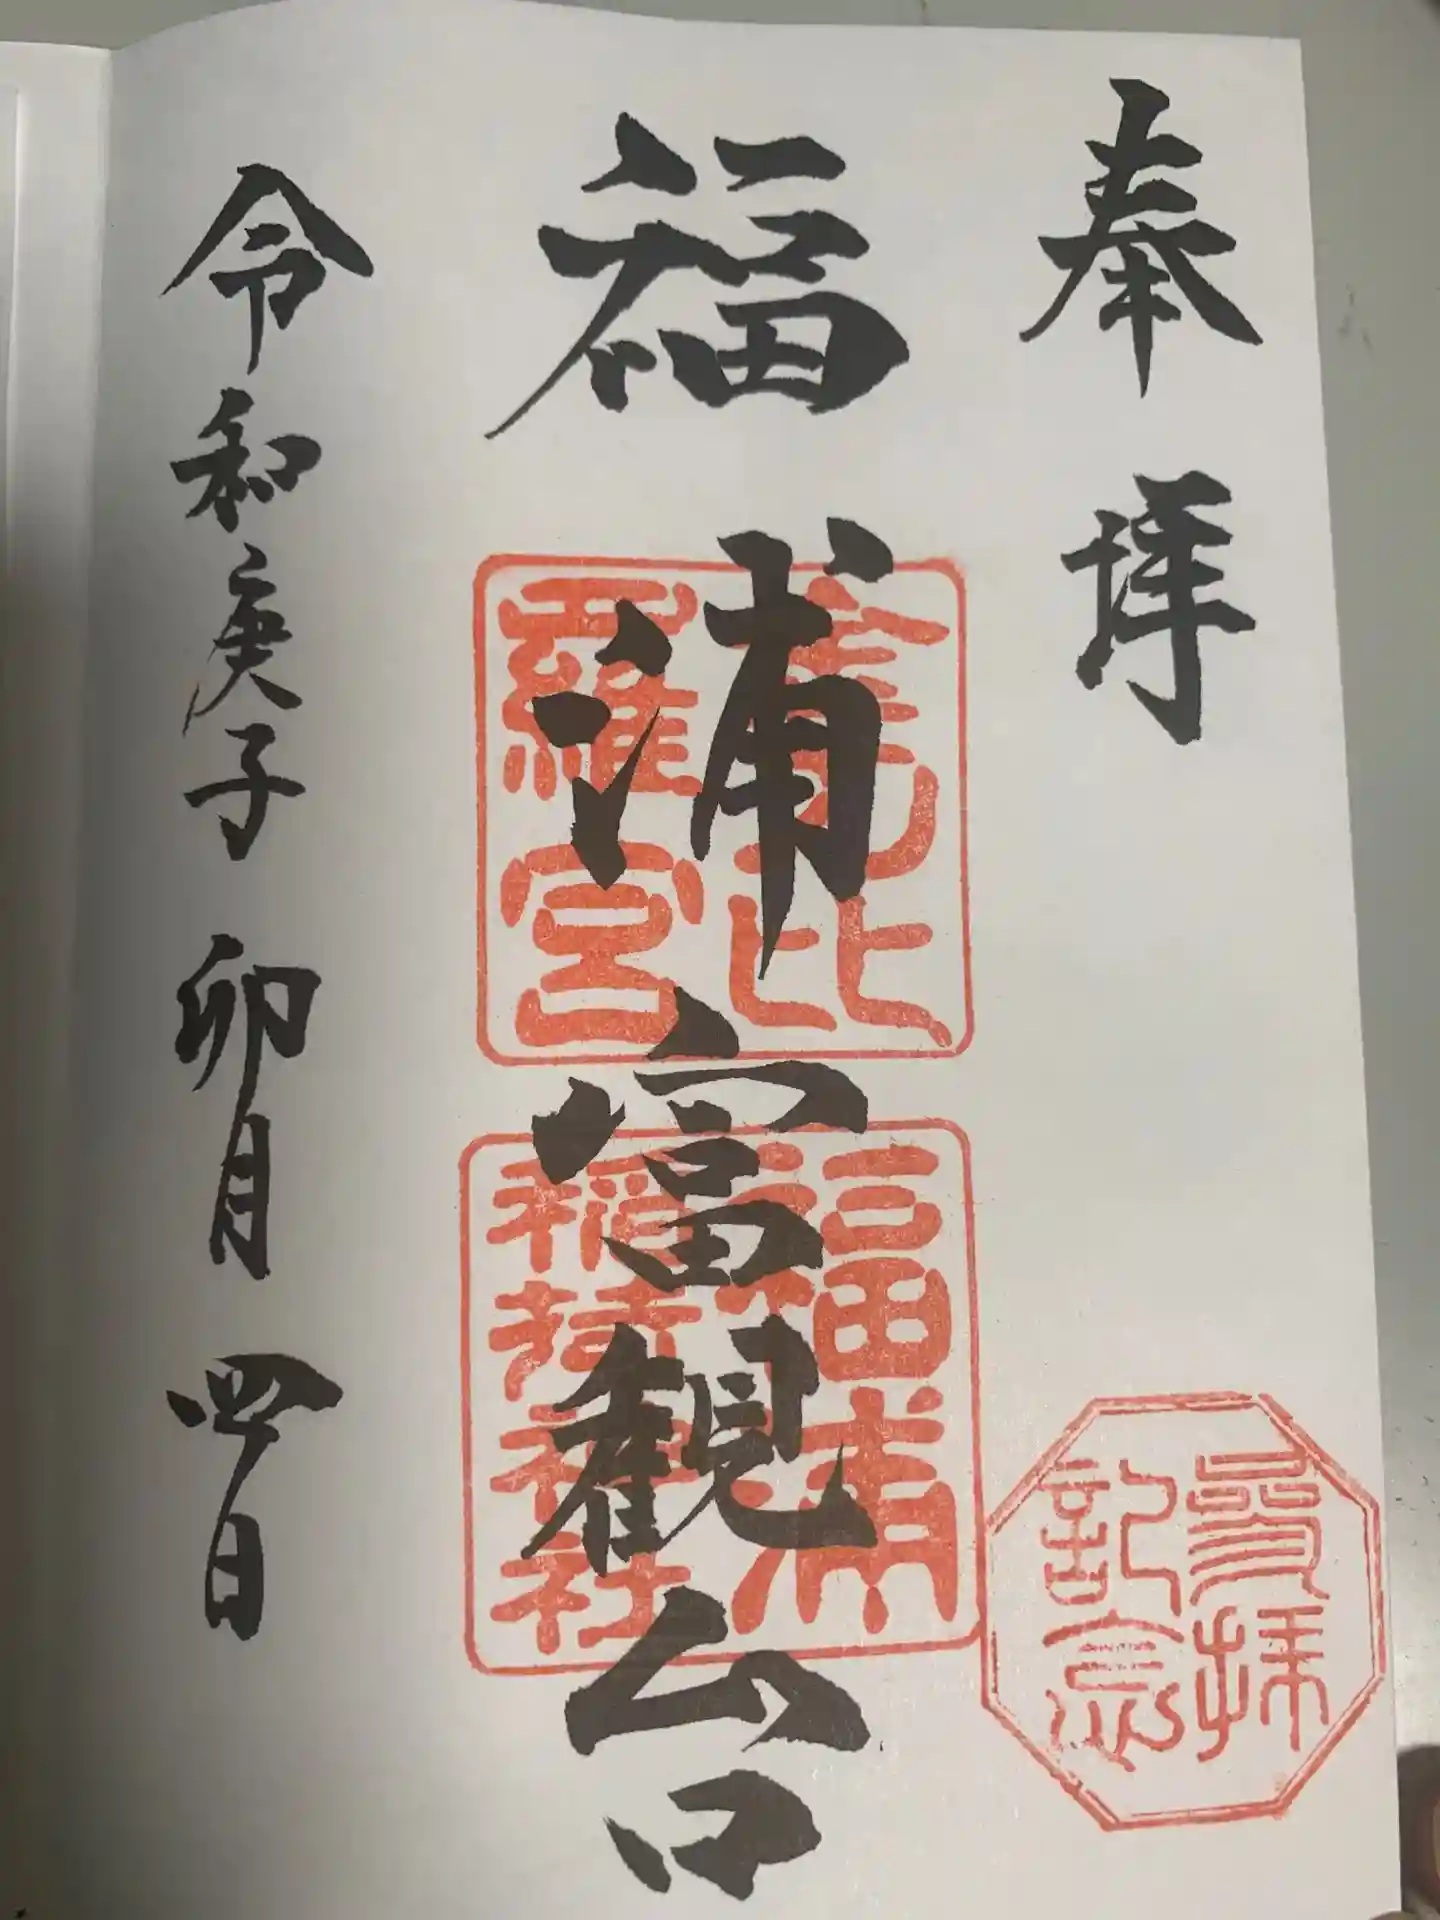 奉拝
福浦富観台
令和庚子卯月四日
金毘羅宮
福浦稲荷神社
参拝記念